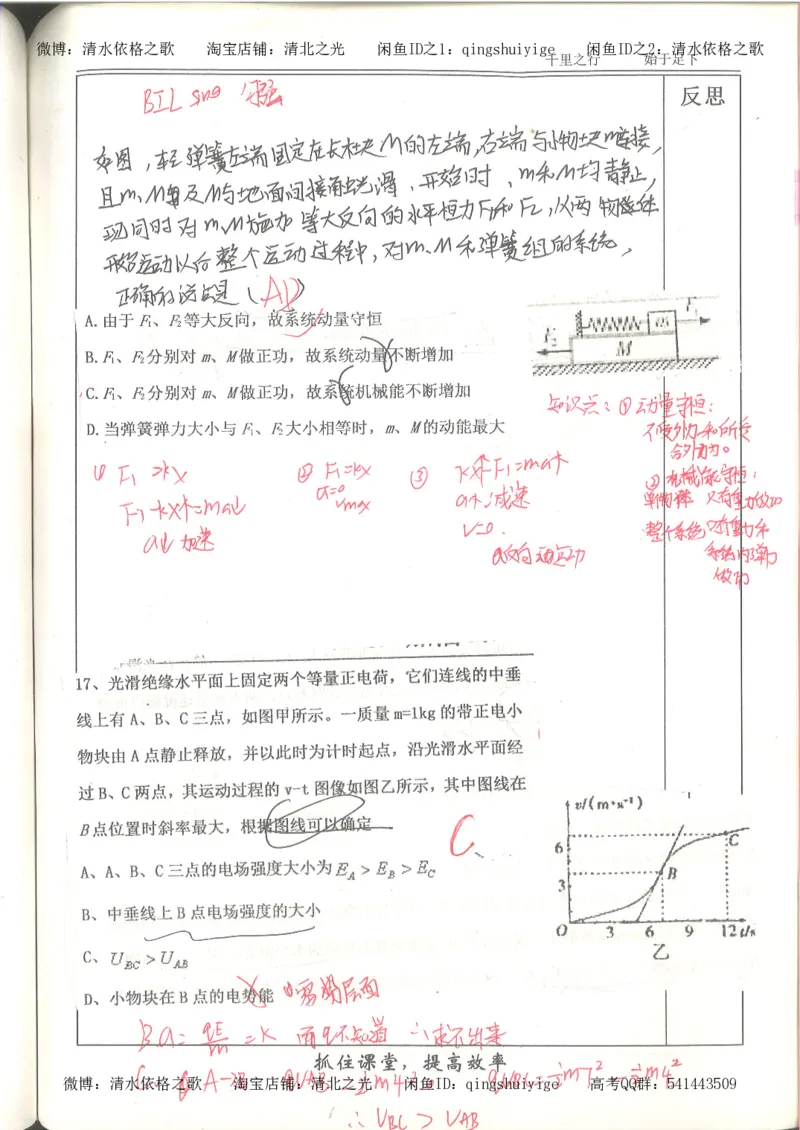 微博：清水依格之歌 淘宝店铺：清北之光 闲鱼ID之1：qingshuiyige 闲鱼ID之2：清水依格之歌
千里之行 始于足下
反思
如图，轻弹簧左端固定在长木块M的左端，右端与小物块m连接，
且m、M及M与地面间接触光滑，开始时，m和M均静止，
现同时对m、M施加等大反向的水平恒力F₁和F₂，从两物体
开始运动以后整个运动过程中，对m、M和弹簧组成的系统，
正确的说法是（AD）
A.由于F₁、F₂等大反向，故系统动量守恒
B.F₁、F₂分别对m、M做正功，故系统动量不断增加
C.F₁、F₂分别对m、M做正功，故系统机械能不断增加
D.当弹簧弹力大小与F₁、F₂大小相等时，m、M的动能最大
F₁
m
F₂
M
知识点：①动量守恒：
不受外力和所受
合外力为0。
②机械能守恒：
单物体 只有重力做功
整个系统 只有重力和
系统内弹力
做功
① F₁>kx
F₁-kx↑=ma↓
a↓ 加速
② F₁=kx
a=0
vmax
③ kx↑-F₁=ma↑
a↑ 减速
v=0.
17、光滑绝缘水平面上固定两个等量正电荷，它们连线的中垂
线上有A、B、C三点，如图甲所示。一质量m=1kg的带正电小
物块由A点静止释放，并以此时为计时起点，沿光滑水平面经
过B、C两点，其运动过程的v-t图像如图乙所示，其中图线在
B点位置时斜率最大，根据图线可以确定
C
A、A、B、C三点的电场强度大小为E_A>E_B>E_C
B、中垂线上B点电场强度的大小
C、U_BC>U_AB
D、小物块在B点的电势能
v/(m·s⁻¹)
6
3
B
C
O 3 6 9 12 t/s
乙
B.a=qE/m=k 而q不知道 ∴求不出来
抓住课堂，提高效率
微博：清水依格之歌 淘宝店铺：清北之光 闲鱼ID：qingshuiyige 高考QQ群：541443509
∴U_BC>U_AB